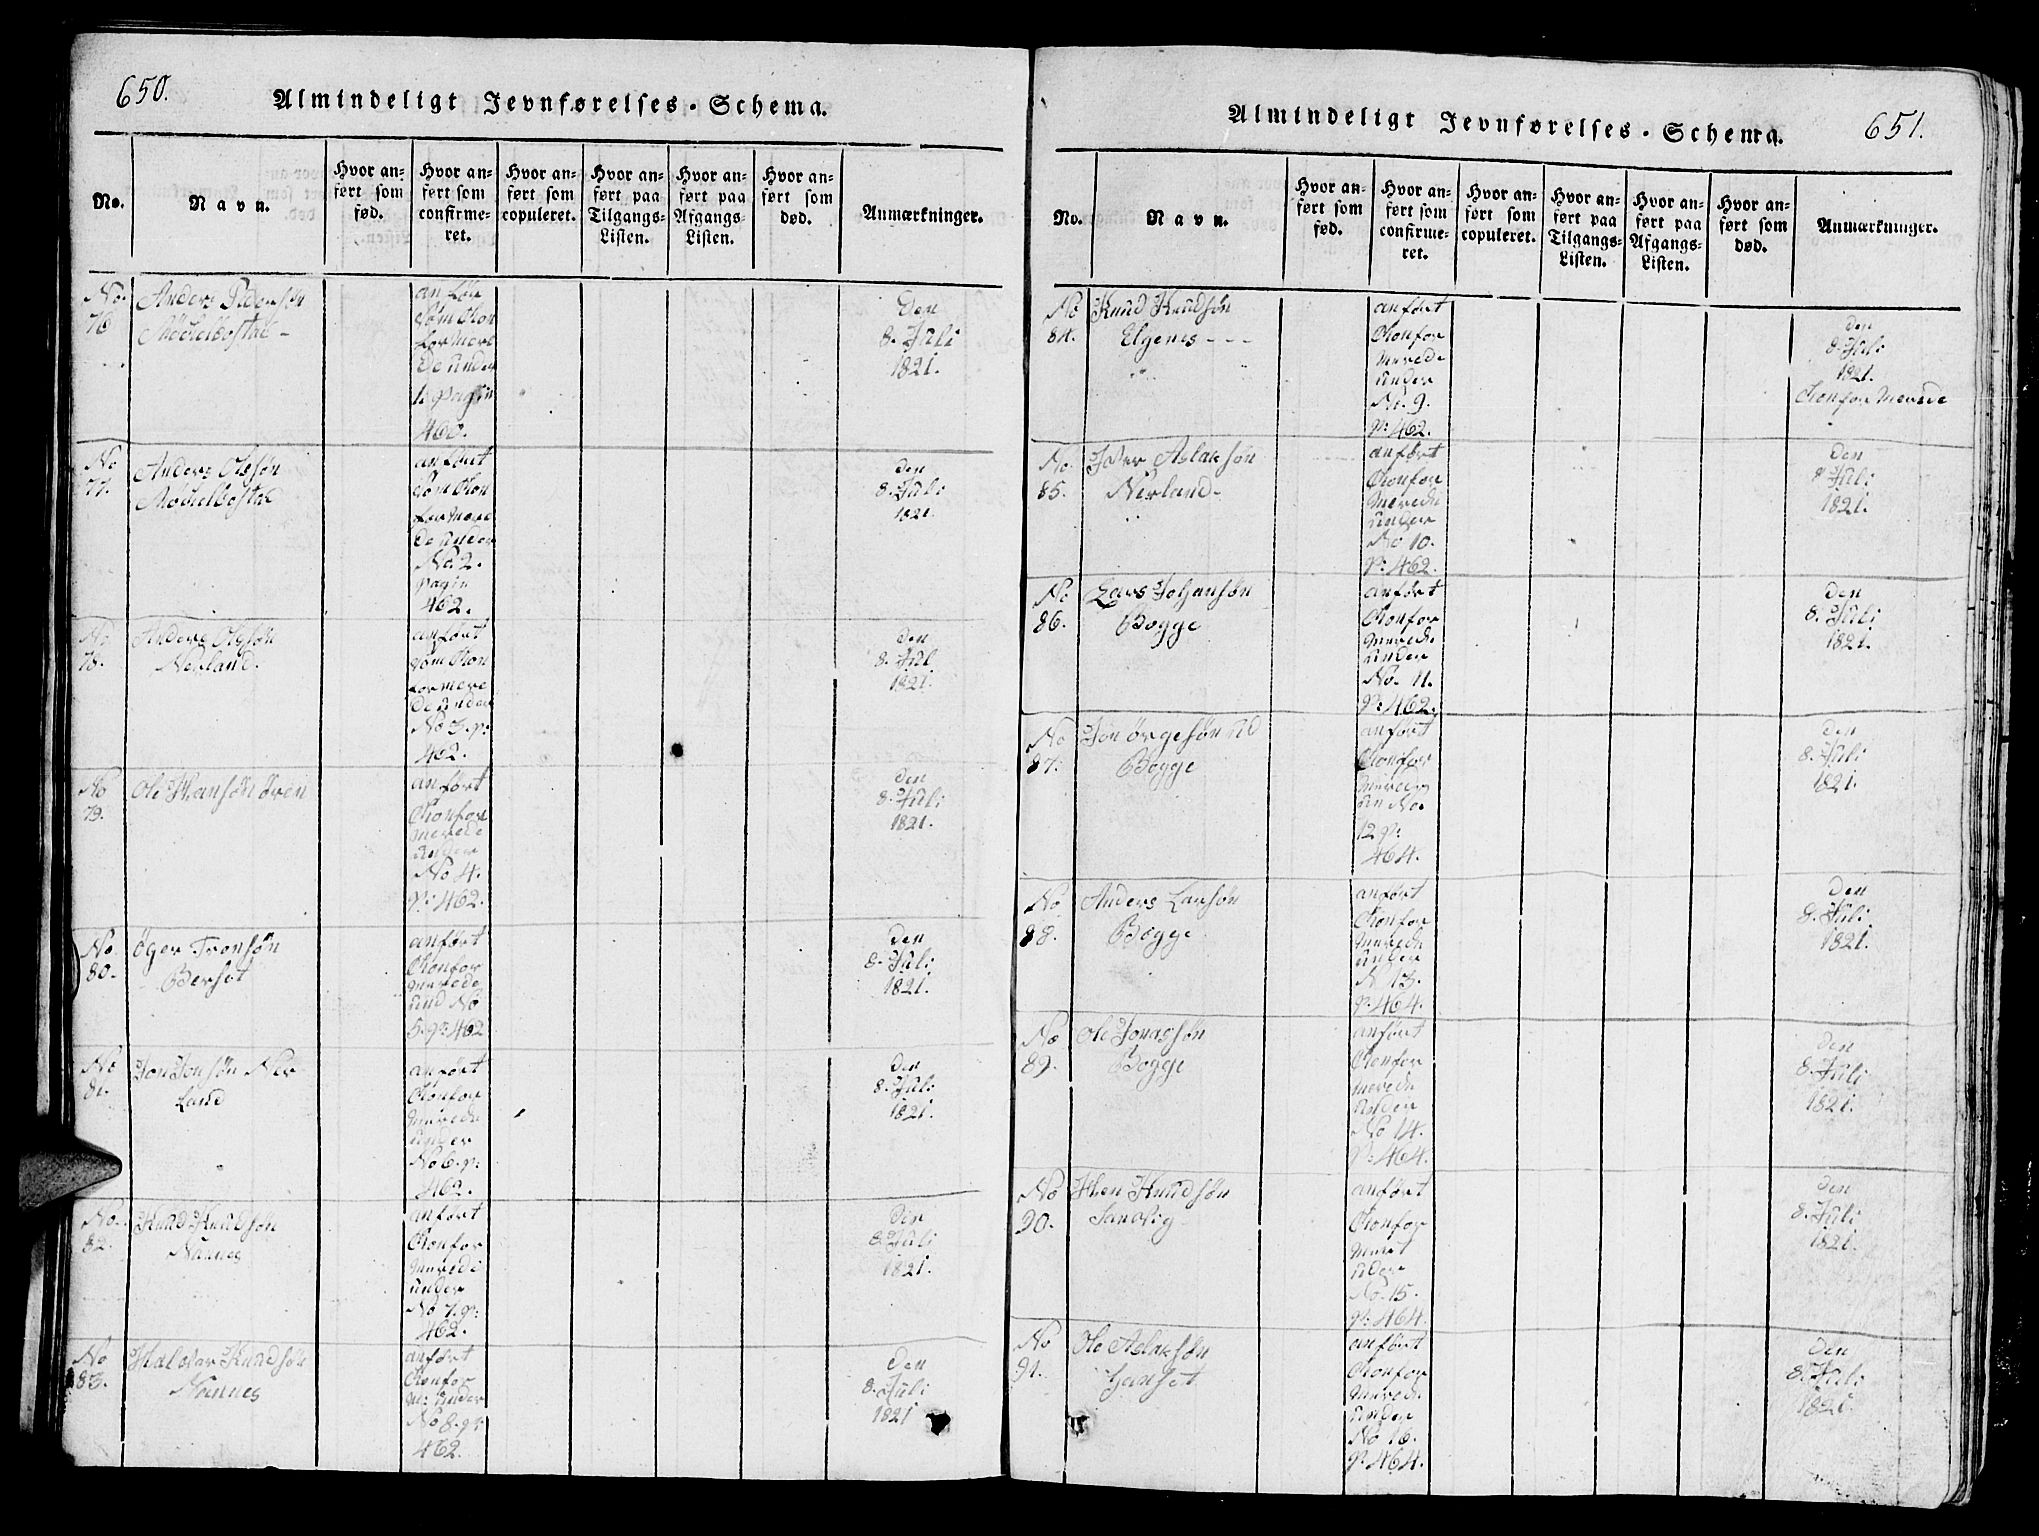 650.
Almindeligt Jevnførelses-Schema.
No.
Navn.
Hvor an-
ført som
fød.
Hvor an-
ført som
confirme-
ret.
Hvor an-
ført som
copuleret.
Hvor an-
ført paa
Tilgangs-
Listen.
Hvor an-
ført paa
Afgangs-
Listen.
Hvor an-
ført som
død.
Anmærkninger.
No.
76
Anders
anför
som Kon
formere
de under
1. pagin
460.
Den
8. Juli
1821.
No
77.
Anders Olssøn
anført
som Kon
formere
de under
No. 2.
pagin
462.
den
8. Juli
1821.
No
78.
Anders Olssøn
Nerland.
anført
som Kon
formere
de under
No 3. p:
462.
den
8. Jul
1821.
No
79.
Ole Hansøn ören
anført
Konfor
merede
under
No 4.
p: 462.
den
8. Juli
1821.
No
80.
öger Tronsøn
Berset
anført
Konfor
merede
und No
5. p: 462
den
8. Juli
1821.
No
81.
Jon Jonsøn Ner
land
anført
Konfor
merede
under
No 6. p:
462.
den
8. Juli
1821.
No.
82.
Knud Knudsøn
Naunes
anført
Konfor
merede
under
No 7. p:
462.
den
8. Juli
1821.
No
83.
Halvar Knudsøn
Naunes
anført
Konfor
m: under
No 8. p:
462.
Den
8. Juli
1821
Almindeligt Jevnførelses-Schema.
651.
No.
Navn.
Hvor an-
ført som
fød.
Hvor an-
ført som
confirme-
ret.
Hvor an-
ført som
copuleret.
Hvor an-
ført paa
Tilgangs-
Listen.
Hvor an-
ført paa
Afgangs-
Listen.
Hvor an-
ført som
død.
Anmærkninger.
No
84.
Knud Knudsøn
Elgenes - - -
anført
Konfor
merede
under
No. 9.
p: 462.
den
8 Juli
1821.
Konfor merede
No.
85.
Iver Aslaksøn
Nerland-
anført
Konfor
merede
under
No 10.
p: 462.
den
8 Juli
1821.
No
86.
Lars Johansøn
Bogge
anført
Konfor
merede
under
No. 11.
p: 462.
den
8. Juli
1821.
No
87.
Jon örgesøn
Bogge
anført
Konfor
merede
un No
12 p:
464.
den
8. Juli
1821.
No
88.
Anders Larsøn
Bogge
anført
Konfor
merede
under
N 13.
p: 464.
den
8. Juli
1821.
No
89.
Ole Jonassøn
Bogge
anført
Konfor
merede
No 14.
p: 464.
den
8. Juli
1821.
No
90.
Knudsøn
Sandvig
anført
Konfor
meret
uder
No. 15.
p: 464.
den
8. Juli
1821.
No
91.
Ole Aslaksøn
anført
Konfor
merede
under
No 16.
p: 464.
Den
8. Juli
1821.